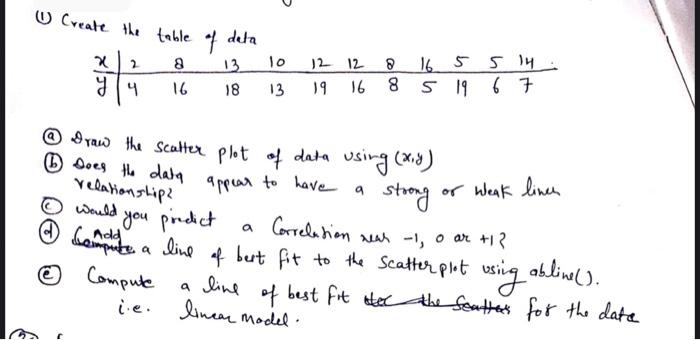 (1) Create the table of data
x | 2 8 13 10 12 12 8 16 5 5 14 .
y | 4 16 18 13 19 16 8 5 19 6 7
(a) Draw the scatter plot of data using (x,y)
(b) Does the data appear to have a strong or weak linear
relationship?
(c) would you predict a Correlation near -1, 0 or +1?
(d) Add a line of best fit to the Scatterplot using abline().
(e) Compute a line of best fit for the data
i.e. linear model.